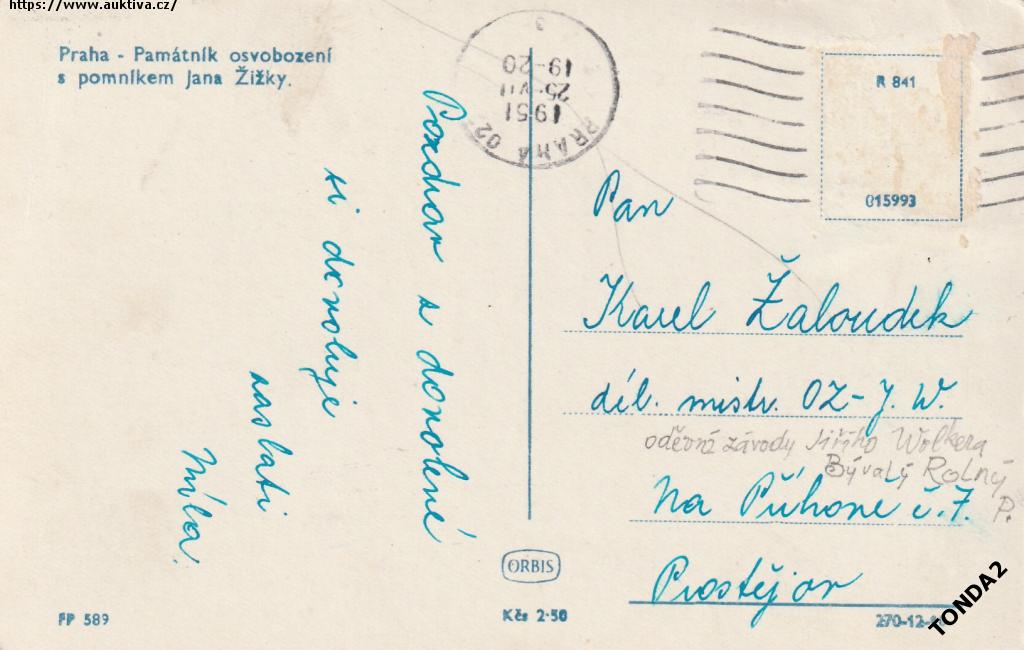 https://www.auktiva.cz/
Praha - Památník osvobození
s pomníkem Jana Žižky.
Pozdrav z dovolené
si dovoluje
zaslati
Míla.
PRAHA 02
1951
25·VII
19-20
3
R 841
015993
Pan
Karel Žaloudek
děl. mistr. OZ-J.W.
oděvní závody Jiřího Wolkera
Bývalý Rolný
P.
Na Příhone č.7.
Prostějov
ORBIS
FP 589
Kčs 2·50
270-12-
TONDA2